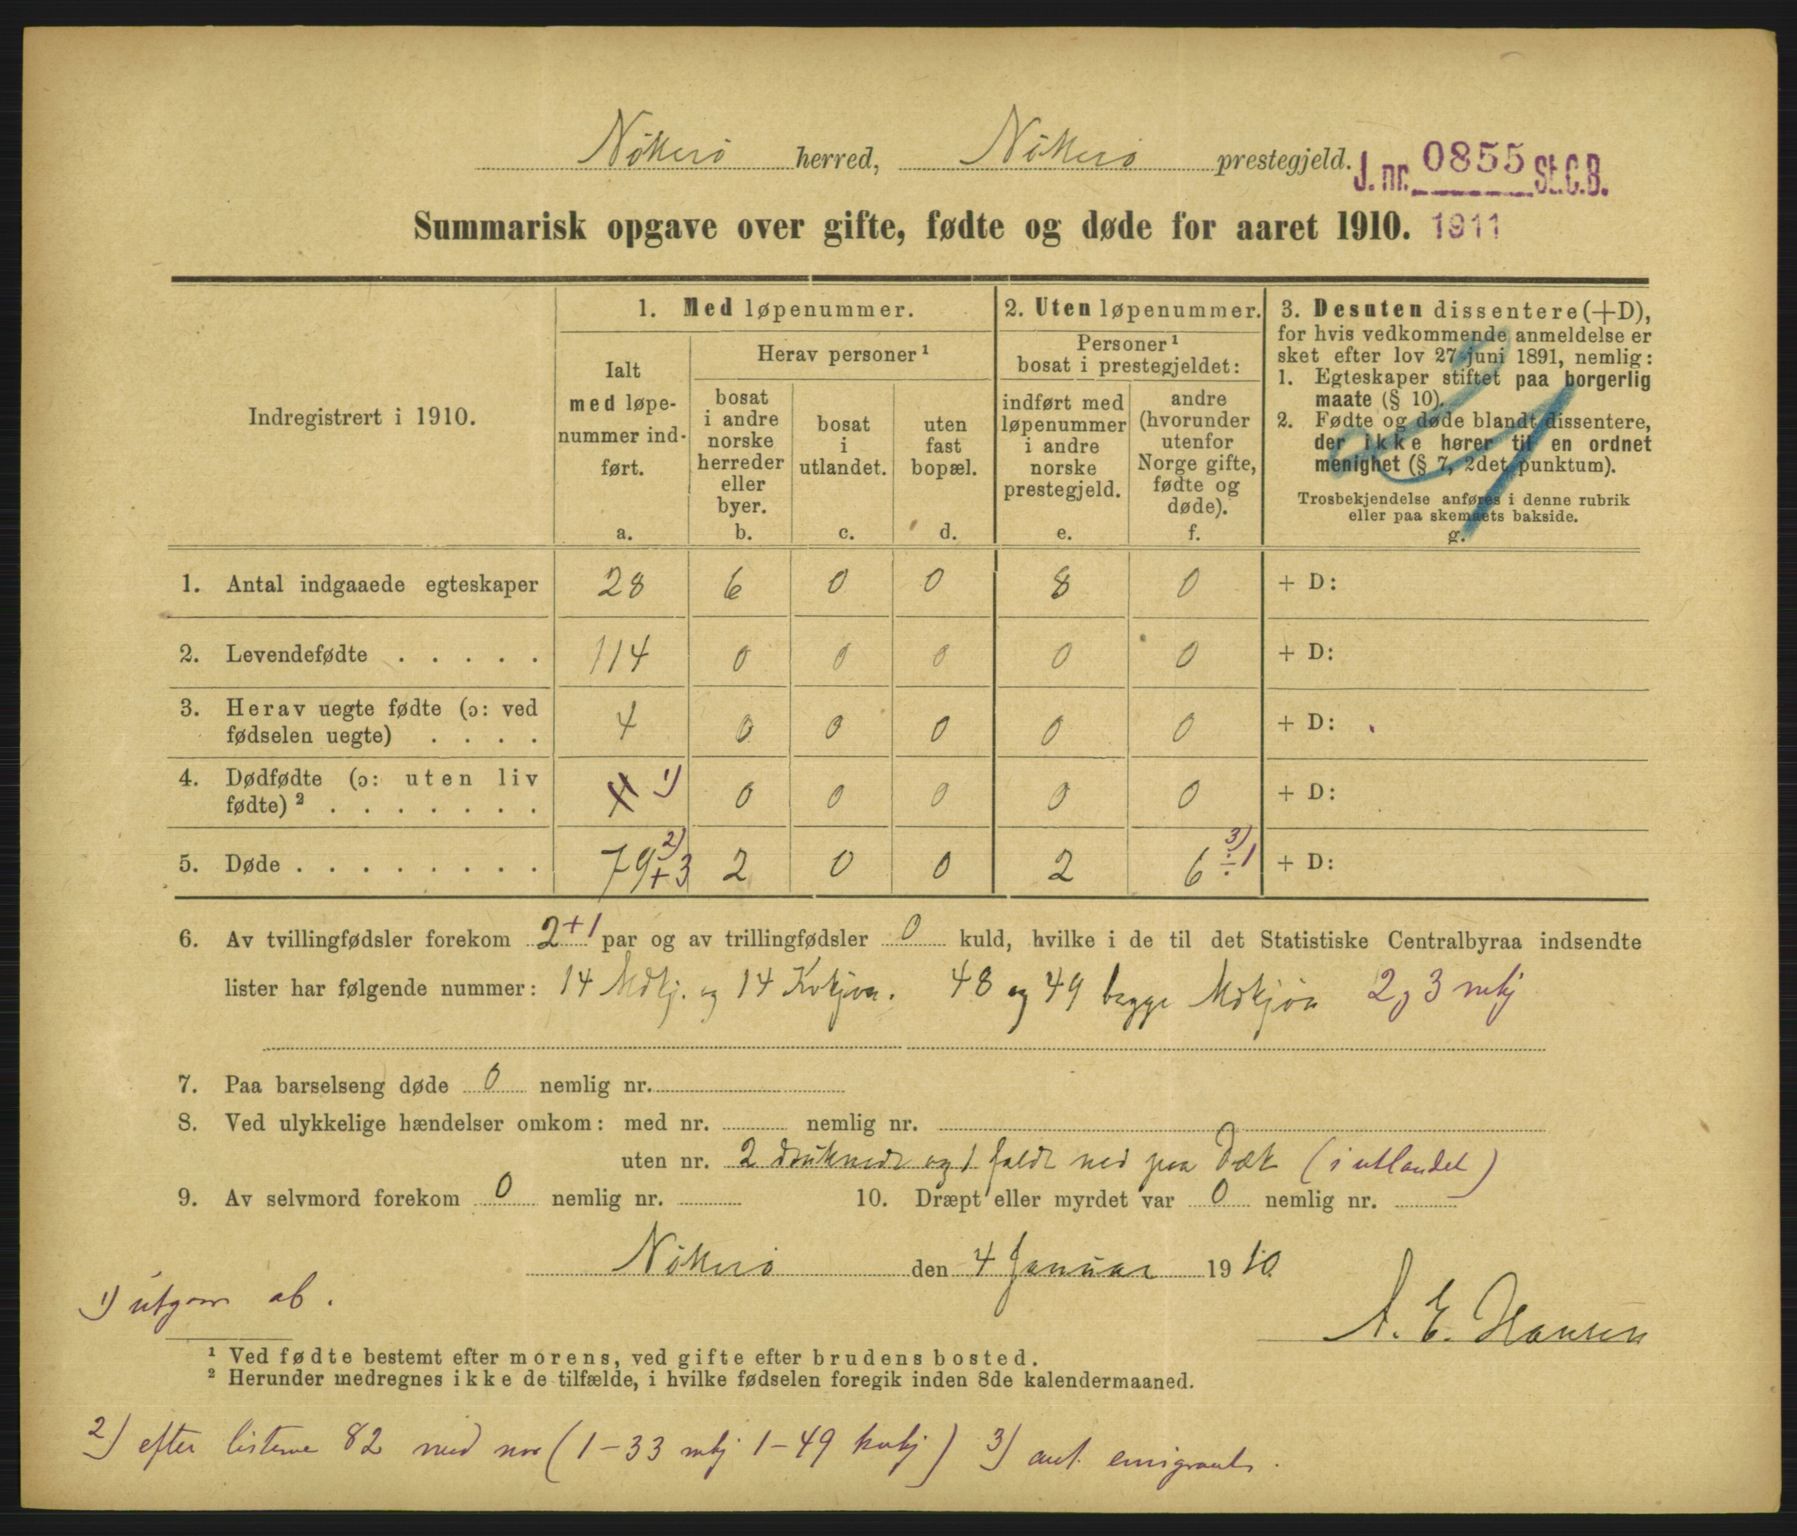 Nøtterø herred, Nøtterø prestegjeld.
J. nr. 0855 St.C.B.
Summarisk opgave over gifte, fødte og døde for aaret 1910. 1911
Indregistrert i 1910.
1. Med løpenummer.
Ialt
med løpe-
nummer ind-
ført.
a.
Herav personer ¹
bosat
i andre
norske
herreder
eller
byer.
b.
bosat
i
utlandet.
c.
uten
fast
bopæl.
d.
2. Uten løpenummer.
Personer ¹
bosat i prestegjeldet:
indført med
løpenummer
i andre
norske
prestegjeld.
e.
andre
(hvorunder
utenfor
Norge gifte,
fødte og
døde).
f.
3. Desuten dissentere (+D),
for hvis vedkommende anmeldelse er
sket efter lov 27 juni 1891, nemlig:
1. Egteskaper stiftet paa borgerlig
maate (§ 10).
2. Fødte og døde blandt dissentere,
der ikke hører til en ordnet
menighet (§ 7, 2det punktum).
Trosbekjendelse anføres i denne rubrik
eller paa skemaets bakside.
g.
1. Antal indgaaede egteskaper 28 6 0 0 8 0 + D:
2. Levendefødte . . . . . 114 0 0 0 0 0 + D:
3. Herav uegte fødte (ɔ: ved
fødselen uegte) . . . . 4 0 0 0 0 0 + D:
4. Dødfødte (ɔ: uten liv
fødte) ² . . . . . . . 4 1) 0 0 0 0 0 + D:
5. Døde . . . . . . . . 79 2) + 3 2 0 0 2 6 3) ÷ 1 + D:
6. Av tvillingfødsler forekom 2 + 1 par og av trillingfødsler 0 kuld, hvilke i de til det Statistiske Centralbyraa indsendte
lister har følgende nummer: 14 Mdkj. og 14 Kvkjøn. 48 og 49 begge Mdkjøn 2 og 3 mkj
7. Paa barselseng døde 0 nemlig nr.
8. Ved ulykkelige hændelser omkom: med nr. nemlig nr.
uten nr. 2 druknede og 1 faldt ned paa Dæk (i utlandet)
9. Av selvmord forekom 0 nemlig nr. 10. Dræpt eller myrdet var 0 nemlig nr.
Nøtterø den 4 Januar 1910
1) utgaar ab.
A. E. Hansen
¹ Ved fødte bestemt efter morens, ved gifte efter brudens bosted.
² Herunder medregnes ikke de tilfælde, i hvilke fødselen foregik inden 8de kalendermaaned.
2) efter listerne 82 med nr (1-33 mkj 1-49 kvkj) 3) ant. emigrant.